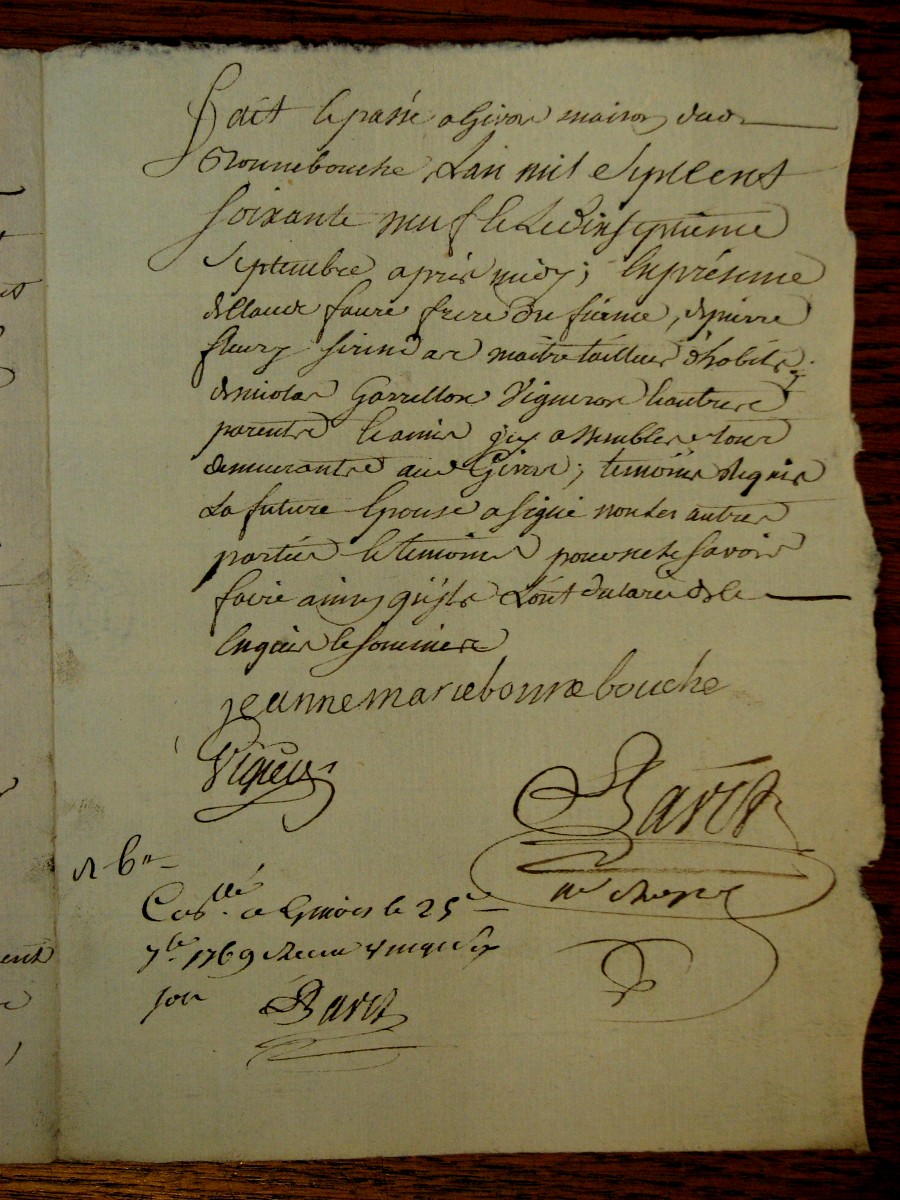 fait et passé a Givors maison dud
Bonnebouche, L'an mil Sept Cent
Soixante neuf et le dix septieme
Septembre apres midy; En présence
de Claude faure frere du fiancé, de pierre
fleury maitre tailleur d'habits
de nicolas Garrillon Vigneron et autres
parents et amis icy assemblés tous
demeurants aud Givors; temoins requis
La future Epouse a signé non les autres
parties et temoins pour ne le Savoir
faire ainsy qu'ils L'ont declaré de ce
Enquis et sommés
jeanne marie bonnebouche
Baret
nre
Con.llé a Givors le 25e
7bre 1769 Recu
Baret